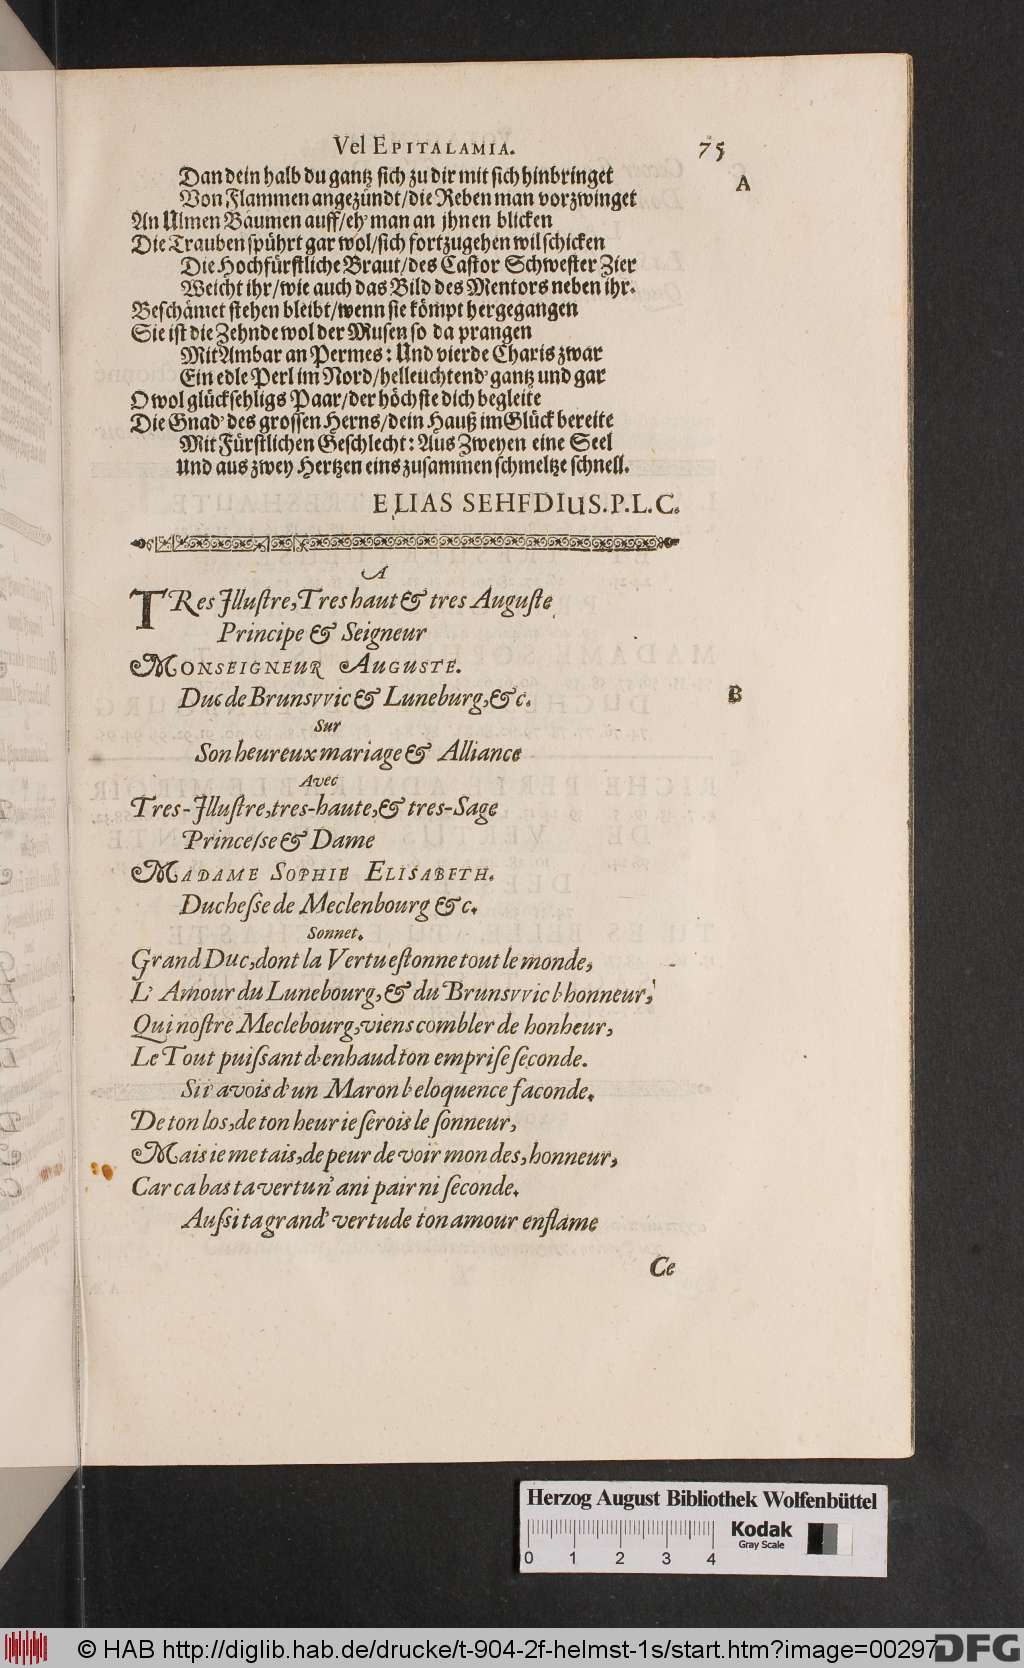 Vel EPITALAMIA. 75
Dan dein halb du gantz sich zu dir mit sich hinbringet
A
Von Flammen angezündt/die Reben man vorzwinget
An Ulmen Bäumen auff/eh' man an jhnen blicken
Die Trauben spührt gar wol/sich fortzugehen wil schicken
Die Hochfürstliche Braut/des Castor Schwester Zier
Weicht ihr/wie auch das Bild des Mentors neben ihr.
Beschämet stehen bleibt/wenn sie kömpt hergegangen
Sie ist die Zehnde wol der Musen so da prangen
Mit Ambar an Permes: Und vierde Charis zwar
Ein edle Perl im Nord/helleuchtend' gantz und gar
O wol glücksehligs Paar/der höchste dich begleite
Die Gnad' des grossen Herns/dein Hauß im Glück bereite
Mit Fürstlichen Geschlecht: Aus Zweyen eine Seel
Und aus zwey Hertzen eins zusammen schmeltze schnell.
ELIAS SEHEDIUS.P.L.C.
A
TRes Illustre, Tres haut & tres Auguste
Principe & Seigneur
MONSEIGNEUR AUGUSTE.
Duc de Brunsvvic & Luneburg, &c.
B
Sur
Son heureux mariage & Alliance
Avec
Tres-Illustre, tres-haute, & tres-Sage
Princesse & Dame
MADAME SOPHIE ELISABETH.
Duchesse de Meclenbourg &c.
Sonnet.
Grand Duc, dont la Vertu estonne tout le monde,
L' Amour du Lunebourg, & du Brunsvvic l'honneur,
Qui nostre Meclebourg, viens combler de honheur,
Le Tout puissant d'enhaud ton emprise seconde.
Si i' avois d'un Maron l'eloquence faconde.
De ton los, de ton heur ie serois le sonneur,
Mais ie me tais, de peur de voir mon des, honneur,
Car ca bas ta vertu n' a ni pair ni seconde.
Aussi ta grand' vertu de ton amour enflame
Ce
Herzog August Bibliothek Wolfenbüttel
Kodak
Gray Scale
0 1 2 3 4
© HAB http://diglib.hab.de/drucke/t-904-2f-helmst-1s/start.htm?image=00297
DFG